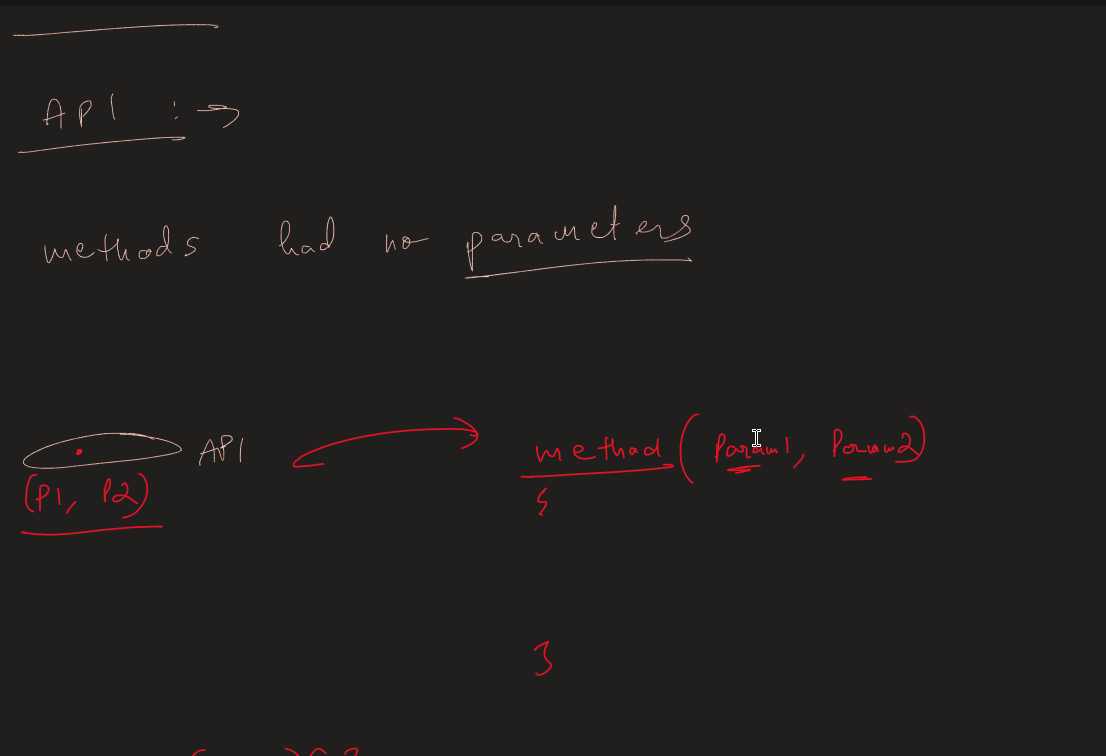 API : →
methods had no parameters
API method (Param1, Param2)
(P1, P2) {
}